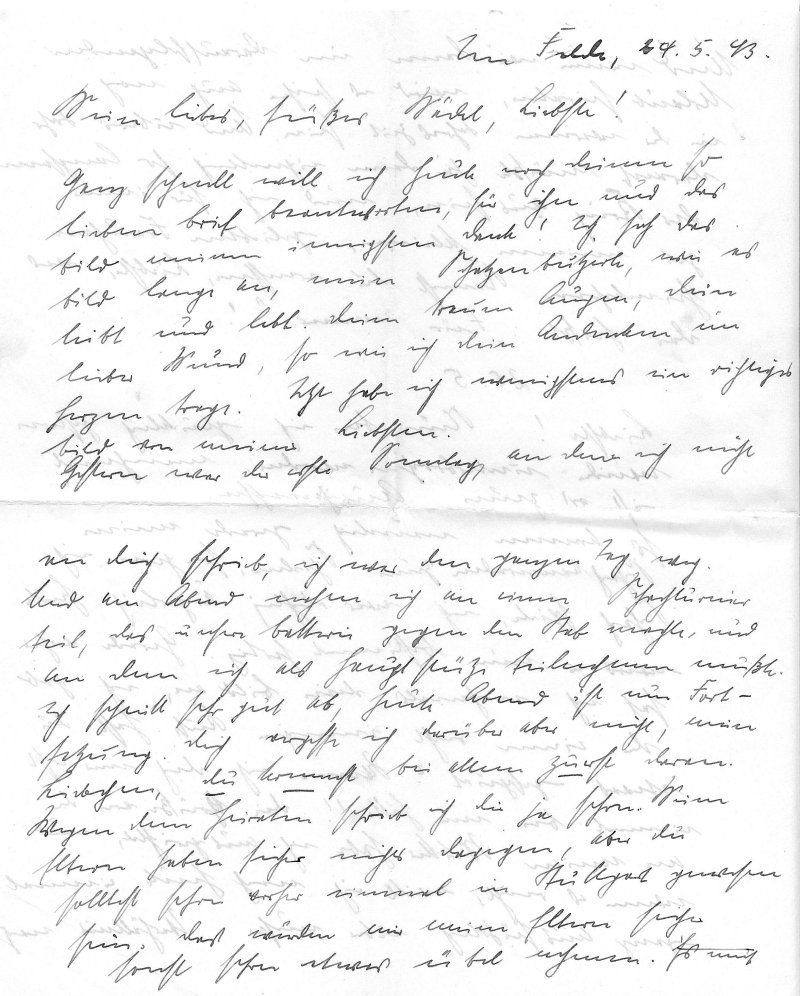 Im Felde, 24. 5. 43.
Mein liebes, süßes Mädel, Liebste!
Ganz schnell will ich heute noch deinen so
lieben brief beantworten, für ihn und das
bild meinen innigsten dank! Ich sah das
bild lange an, mein Schatzenbutzerle, wie es
leibt und lebt. deine treuen Augen, dein
lieber Mund, so wie ich dein Andenken im
herzen trage. Jetzt habe ich wenigstens ein richtiges
bild von meiner Liebsten.
Gestern war der erste Sonntag, an dem ich nicht
an dich schrieb, ich war den ganzen Tag weg.
Und am Abend nahm ich an einem Schachturnier
teil, das unsere batterie gegen den Stab machte, und
an dem ich als hauptstütze teilnehmen mußte.
Ich schnitt sehr gut ab, heute Abend ist nun Fort-
setzung. dich vergesse ich darüber aber nicht, mein
Liebchen, du kommst bei allem zuerst daran.
Wegen dem heiraten schrieb ich dir ja schon. Meine
Eltern haben sicher nichts dagegen, aber du
solltest schon vorher einmal in Stuttgart gewesen
sein. das würden mir meine Eltern sicher
sonst schon etwas übel nehmen. Es muß